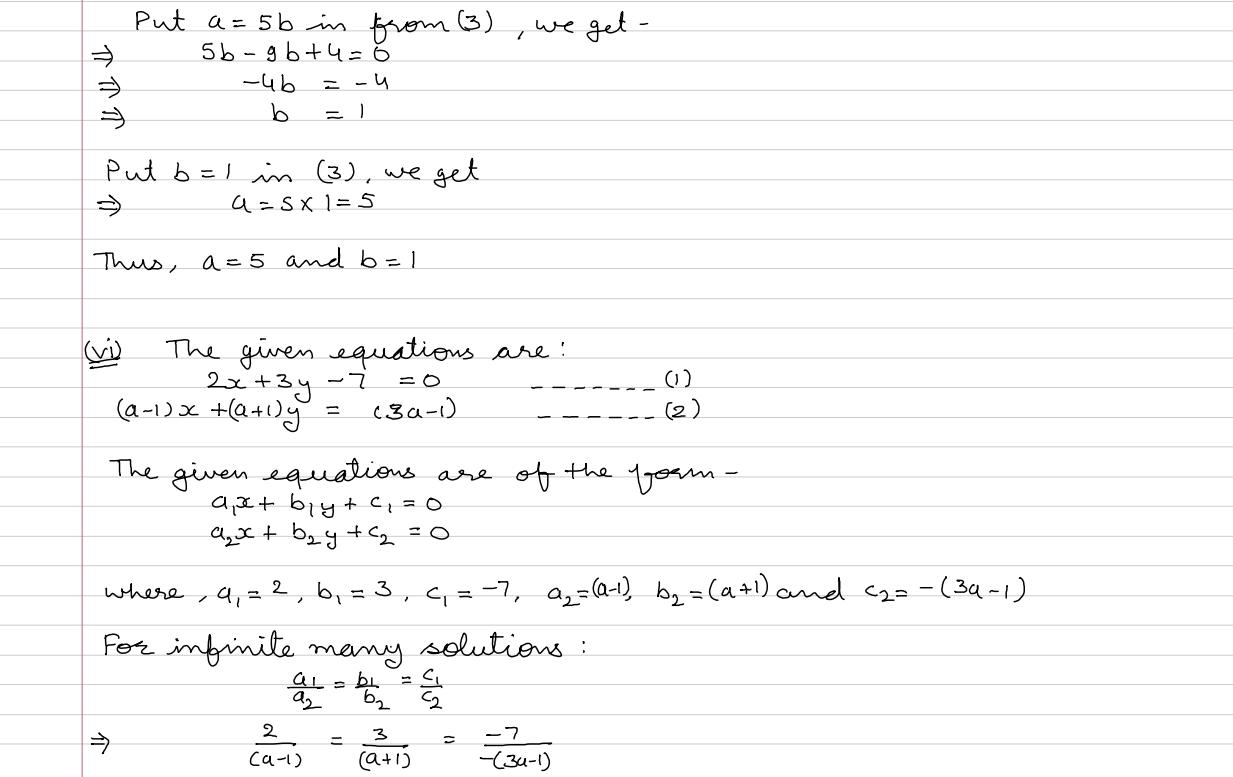 Put a = 5b in from (3), we get -
⇒ 5b - 9b + 4 = 0
⇒ -4b = -4
⇒ b = 1
Put b = 1 in (3), we get
⇒ a = 5 x 1 = 5
Thus, a = 5 and b = 1
(vi) The given equations are :
2x + 3y - 7 = 0 ------- (1)
(a-1)x + (a+1)y = (3a-1) ------ (2)
The given equations are of the form -
a₁x + b₁y + c₁ = 0
a₂x + b₂y + c₂ = 0
where, a₁ = 2, b₁ = 3, c₁ = -7, a₂ = (a-1), b₂ = (a+1) and c₂ = -(3a-1)
For infinite many solutions :
a₁/a₂ = b₁/b₂ = c₁/c₂
⇒ 2/(a-1) = 3/(a+1) = -7/-(3a-1)